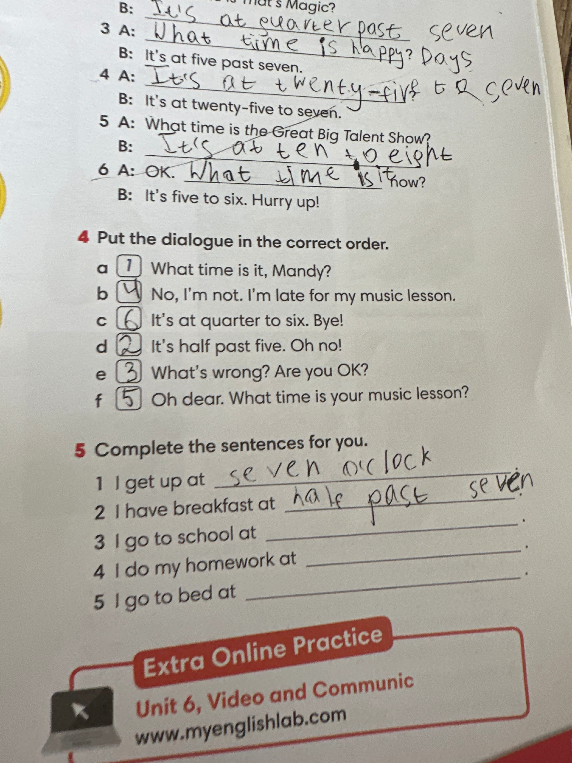 What's Magic?
B: It's at quarter past seven
3 A: What time is happy? Days
B: It's at five past seven.
4 A: It's at twenty-five to seven
B: It's at twenty-five to seven.
5 A: What time is the Great Big Talent Show?
B: It's at ten to eight
6 A: OK. What time is it now?
B: It's five to six. Hurry up!
4 Put the dialogue in the correct order.
a 1 What time is it, Mandy?
b 4 No, I'm not. I'm late for my music lesson.
c 6 It's at quarter to six. Bye!
d 2 It's half past five. Oh no!
e 3 What's wrong? Are you OK?
f 5 Oh dear. What time is your music lesson?
5 Complete the sentences for you.
1 I get up at seven o'clock
2 I have breakfast at hale past seven.
3 I go to school at .
4 I do my homework at .
5 I go to bed at .
Extra Online Practice
Unit 6, Video and Communic
www.myenglishlab.com